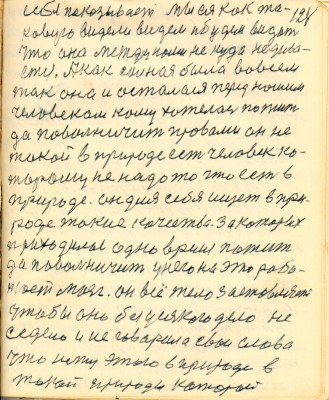 128
себя показывает мы ея как та-
кового видели видем и будем видать
что она между нами не куда не дева-
ется. А как силная была вовсем
так она и осталася перед нашим
человеком кому хотелася пожит
да поволничит правами он не
такой в природе ест человек ко-
торому не надо то что ест в
природе. он для себя ищет в при-
роде такие качества. За которых
приходилос одно время пожит
да поволничит у него на это рабо-
тает мозг. он всё тело заставляет
чтобы оно без всякого дело не
седело и не говарила свои слова
что нету этого в природе в
такой природе которой